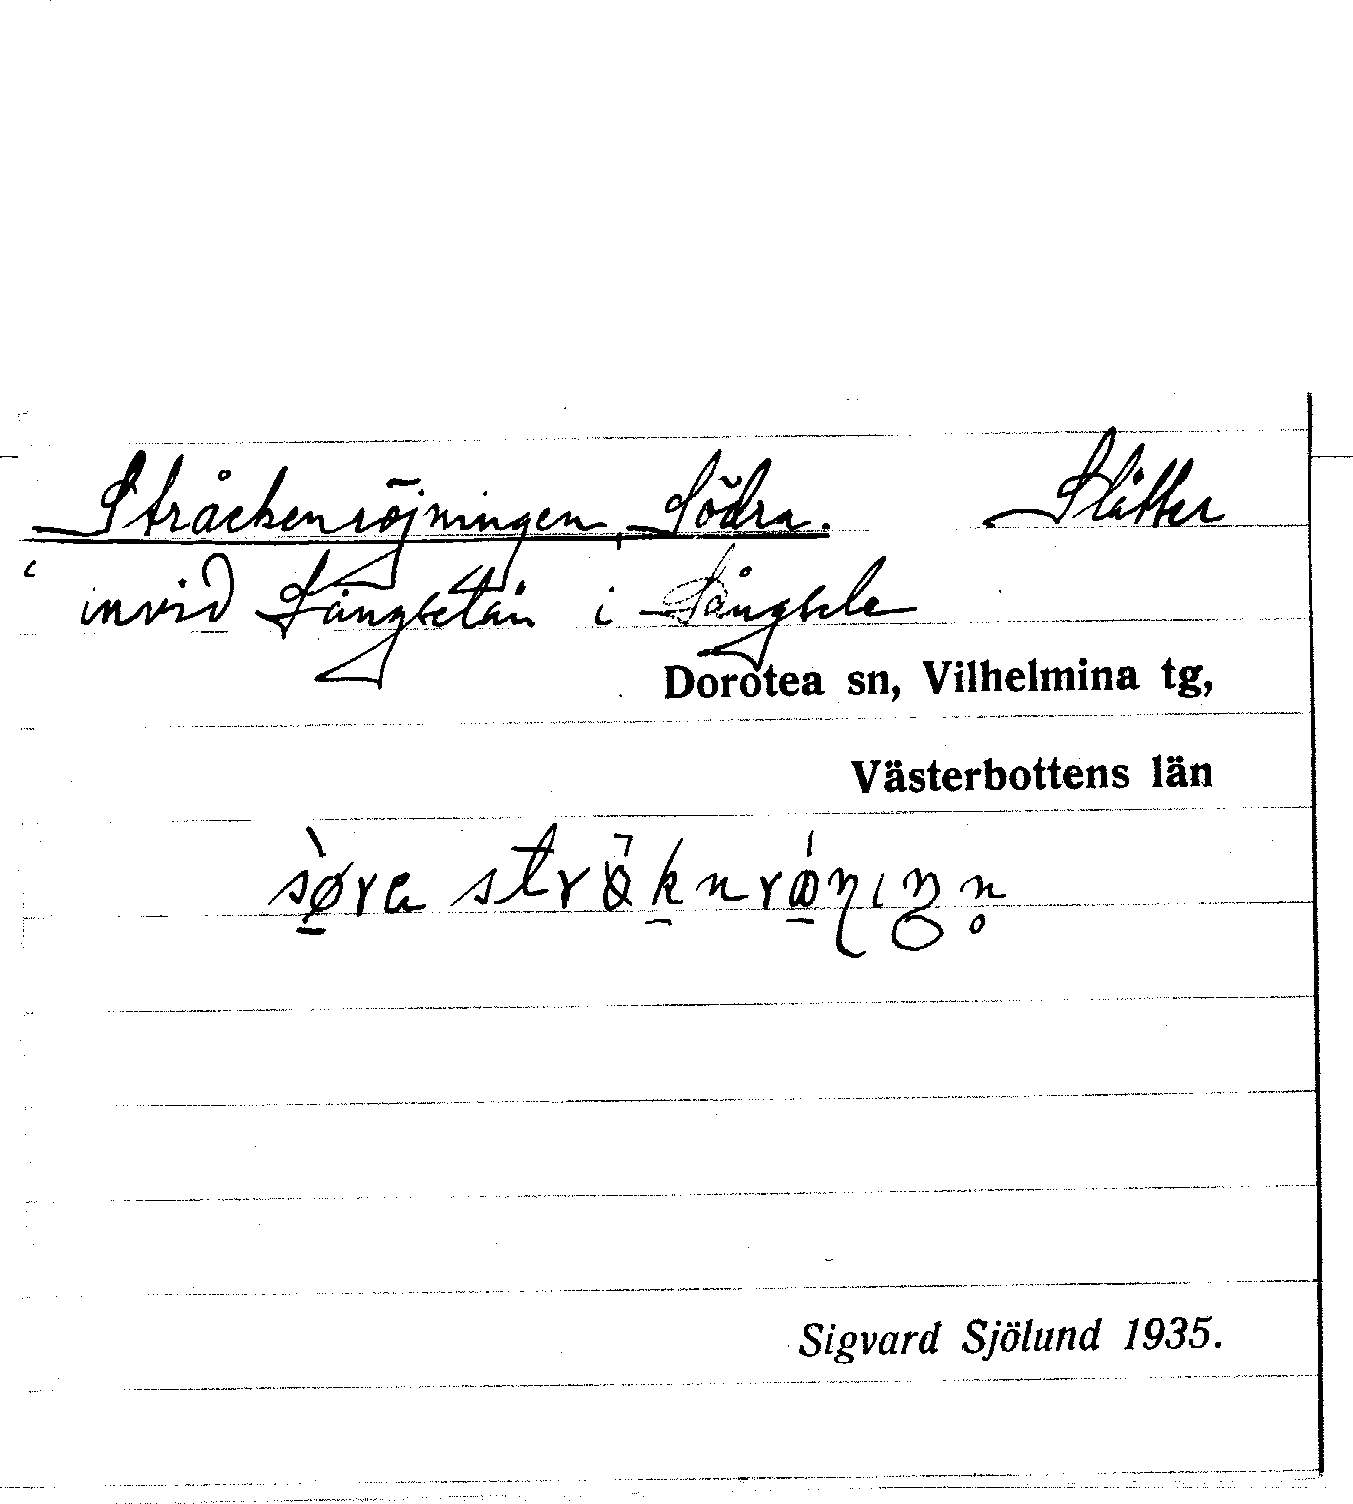 Stråckenröjningen, Södra. Slåtter
invid Långseleån i Långsele
Dorotea sn, Vilhelmina tg,
Västerbottens län
Sigvard Sjölund 1935.